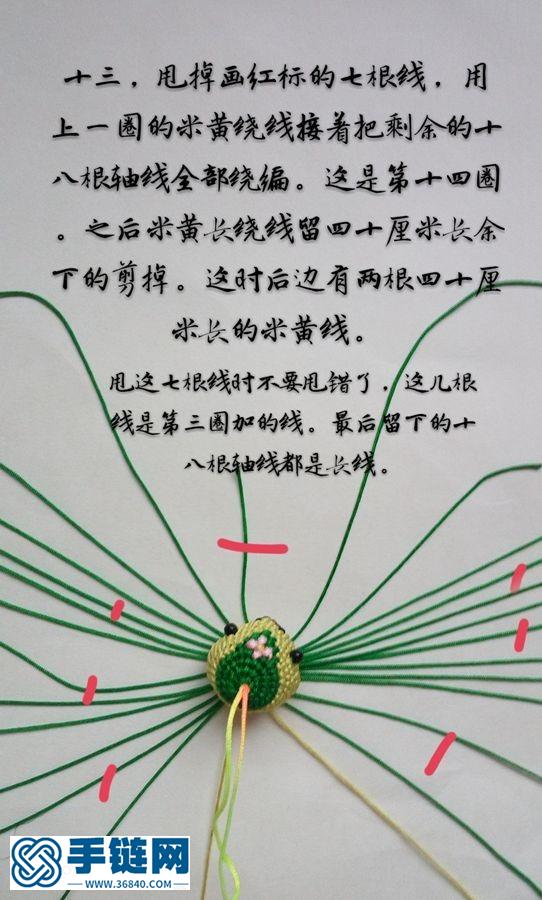 十三，甩掉画红标的七根线，用
上一圈的米黄绕线接着把剩余的十
八根轴线全部绕编。这是第十四圈
。之后米黄长绕线留四十厘米长余
下的剪掉。这时后边有两根四十厘
米长的米黄线。
甩这七根线时不要甩错了，这几根
线是第三圈加的线。最后留下的十
八根轴线都是长线。
手链网
WWW.36840.COM